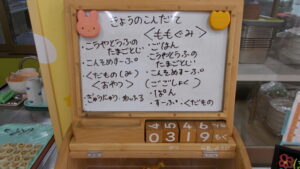 きょうのこんだて
・こうやどうふの
たまごとじ
・こんそめすーぷ
・くだもの(み)
<おやつ>
・ぎゅうにゅう・わっふる
<ももぐみ>
・ごはん
・こうやどうふの
たまごとじ
・こんそめすーぷ
(ごごしょく)
・ぱん
・すーぷ・くだもの
0319